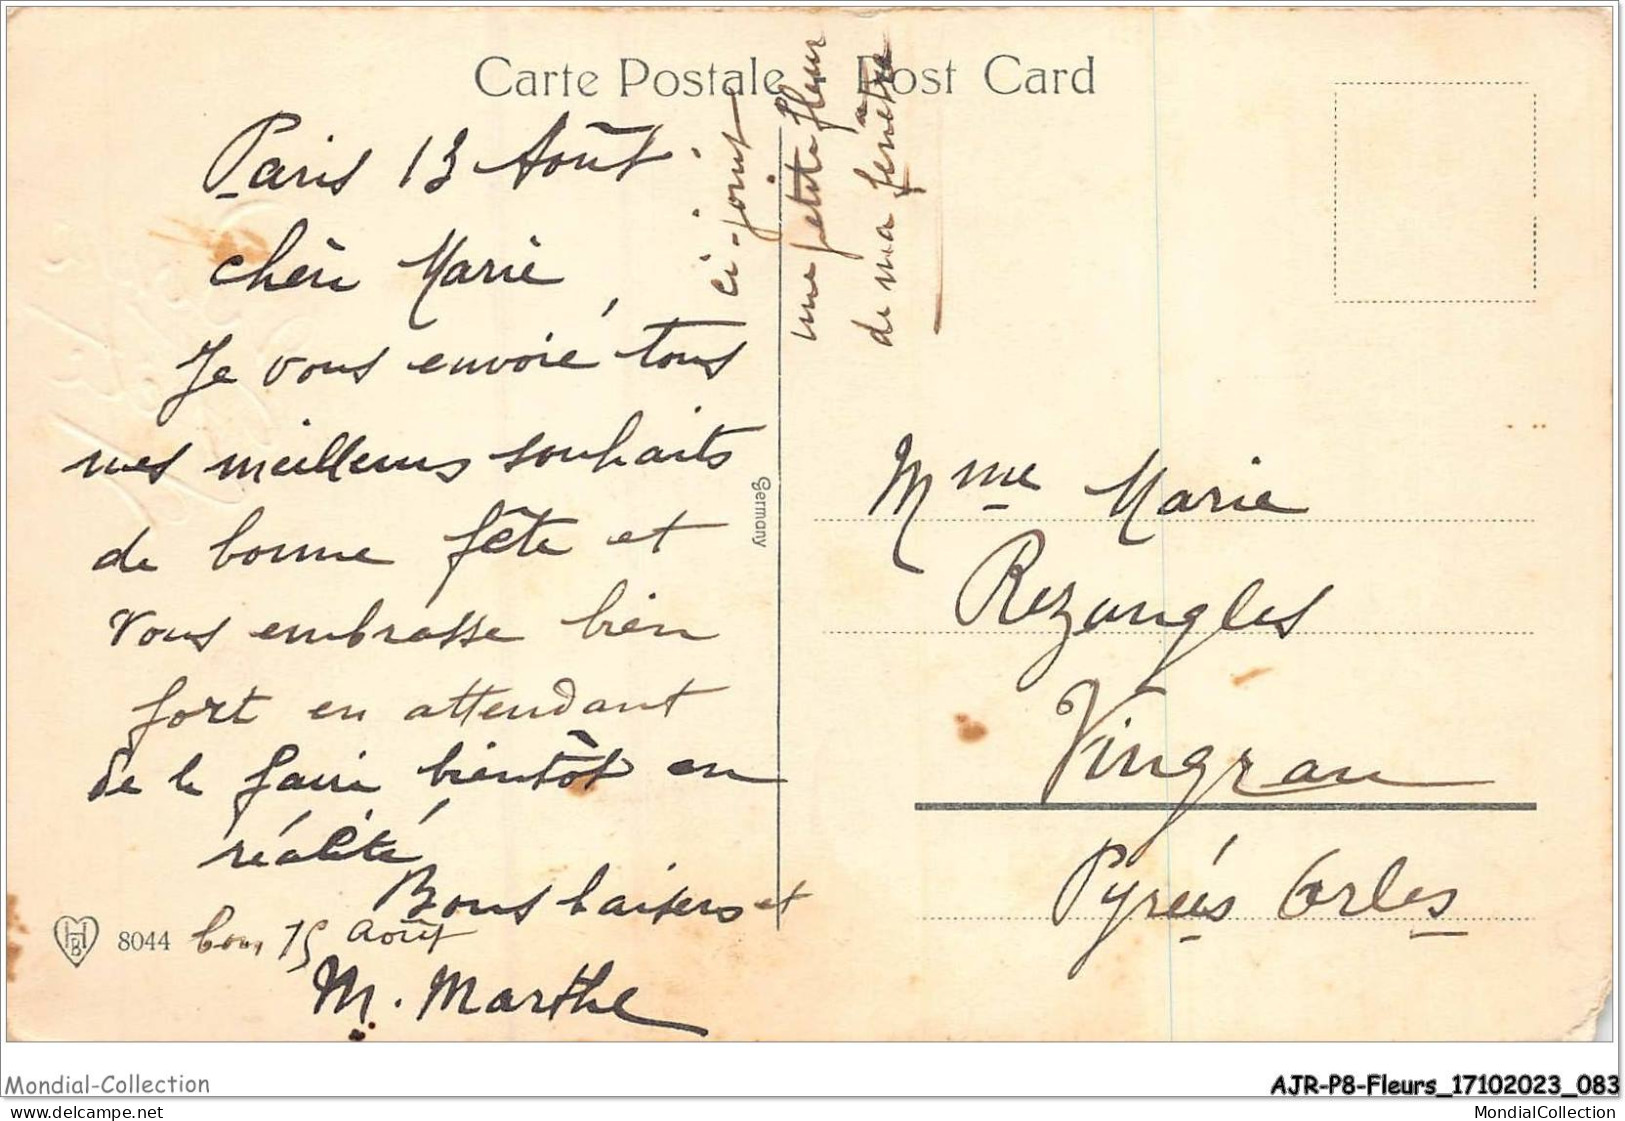 Carte Postale - Post Card
Paris 13 Août.
chère Marie
Je vous envoie tous
mes meilleurs souhaits
de bonne fête et
vous embrasse bien
fort en attendant
de le faire bientôt en
réalité
Bons baisers et
bon 15 août
M. Marthe
ci-joint
une petite fleur
de ma fenêtre
Germany
HB
8044
Mme Marie
Rezungles
Vingrau
Pyrées Orles
Mondial-Collection
AJR-P8-Fleurs_17102023_083
https://www.delcampe.net
MondialCollection